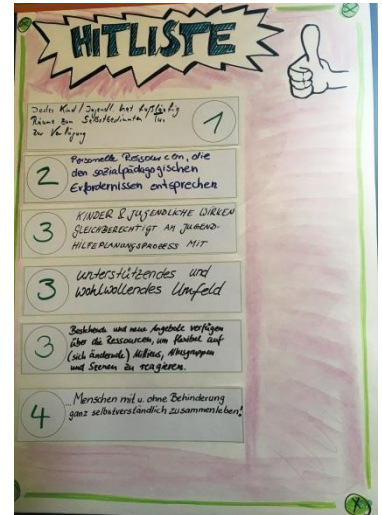 HITLISTE
Jedes Kind/Jugendl. hat fußläufig
Räume zum Selbstbestimmten Tun
zur Verfügung
1
2
Personelle Ressourcen, die
den sozialpädagogischen
Erfordernissen entsprechen
3
KINDER & JUGENDLICHE WIRKEN
GLEICHBERECHTIGT AM JUGEND-
HILFEPLANUNGSPROZESS MIT
3
unterstützendes und
wohlwollendes Umfeld
3
Bestehende und neue Angebote verfügen
über die Ressourcen, um flexibel auf
(sich ändernde) Milieus, Altersgruppen
und Szenen zu reagieren.
4
...Menschen mit u. ohne Behinderung
ganz selbstverständlich zusammenleben!